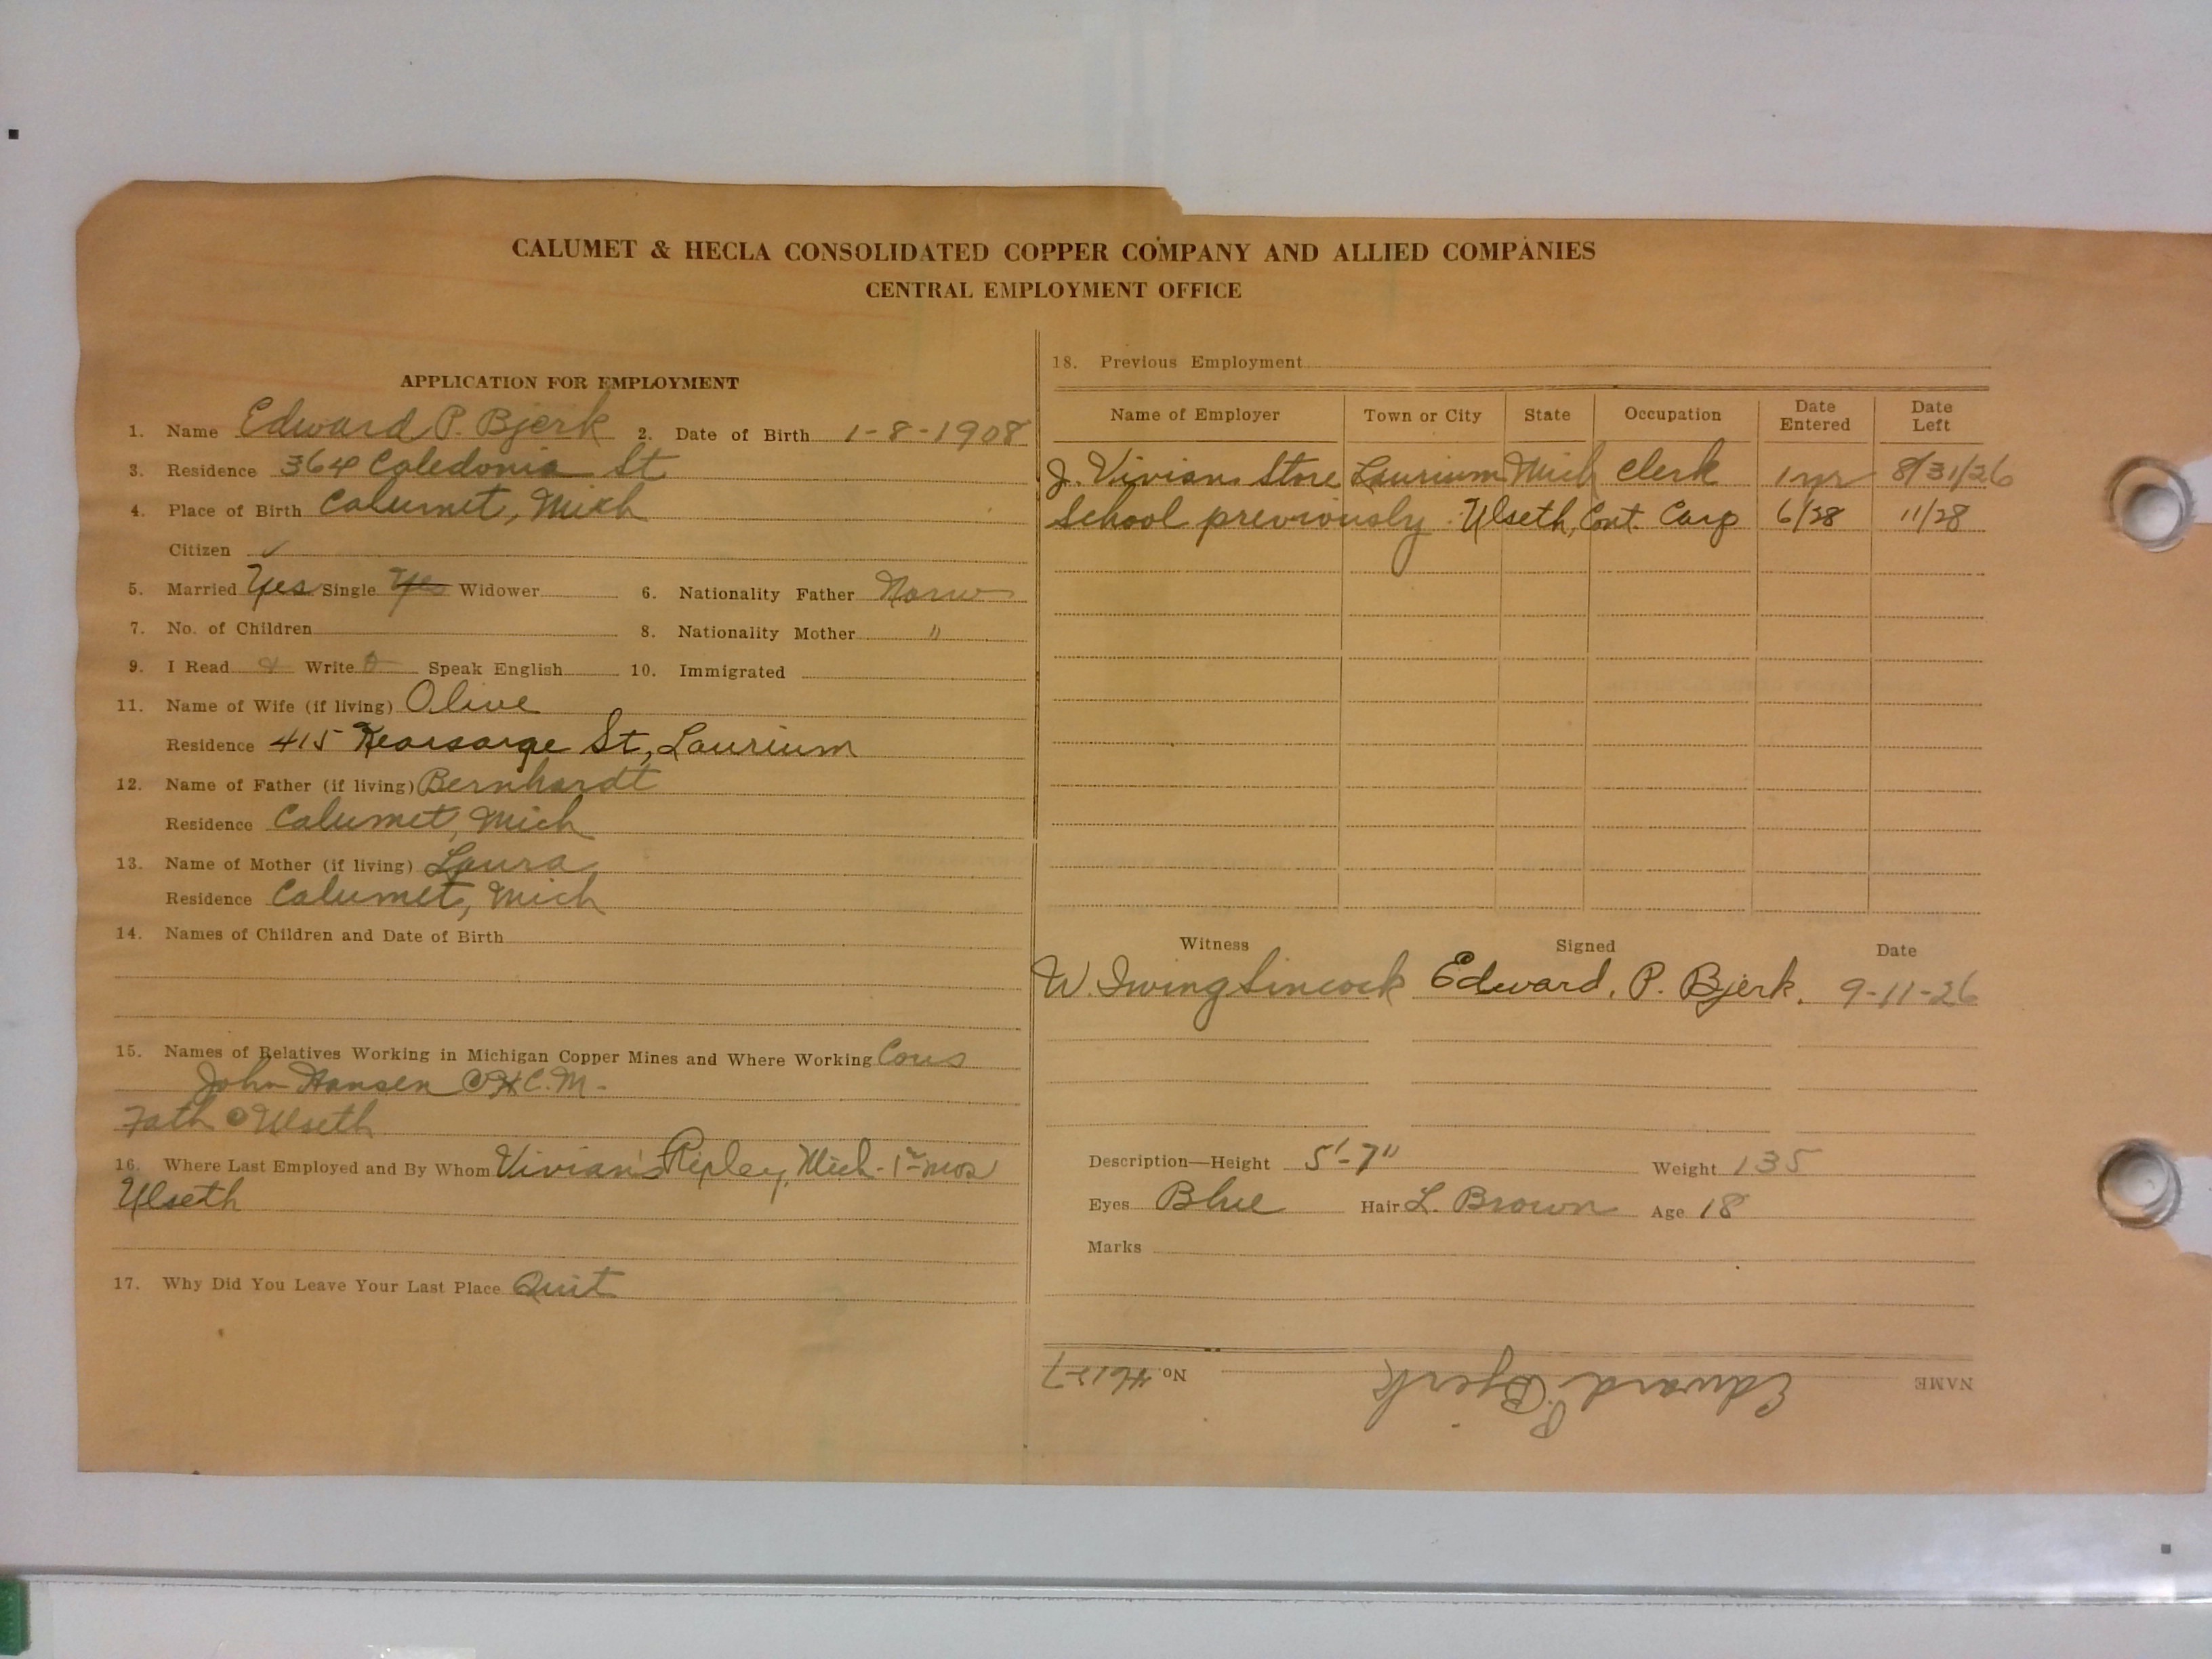 CALUMET & HECLA CONSOLIDATED COPPER COMPANY AND ALLIED COMPANIES
CENTRAL EMPLOYMENT OFFICE
APPLICATION FOR EMPLOYMENT
1. Name Edward P. Bjerk 2. Date of Birth 1-8-1908
3. Residence 364 Caledonia St
4. Place of Birth Calumet, Mich
Citizen ✓
5. Married Yes Single Yes Widower 6. Nationality Father Norw
7. No. of Children 8. Nationality Mother "
9. I Read Write Speak English 10. Immigrated
11. Name of Wife (if living) Olive
Residence 415 Kearsarge St, Laurium
12. Name of Father (if living) Bernhardt
Residence Calumet, Mich
13. Name of Mother (if living) Laura
Residence Calumet, Mich
14. Names of Children and Date of Birth
15. Names of Relatives Working in Michigan Copper Mines and Where Working Cous
John Hansen C.H.C.M.
Fath Ulseth
16. Where Last Employed and By Whom Vivian's Ripley, Mich. mos
Ulseth
17. Why Did You Leave Your Last Place Quit
18. Previous Employment
Name of Employer Town or City State Occupation Date Entered Date Left
J. Vivian Store Laurium Mich Clerk 1 yr 8/31/26
School previously Ulseth, Cont. Carp 6/28 11/28
Witness Signed Date
W. Irving Sincock Edward. P. Bjerk. 9-11-26
Description—Height 5'-7" Weight 135
Eyes Blue Hair L. Brown Age 18
Marks
NAME Edward P. Bjerk No.